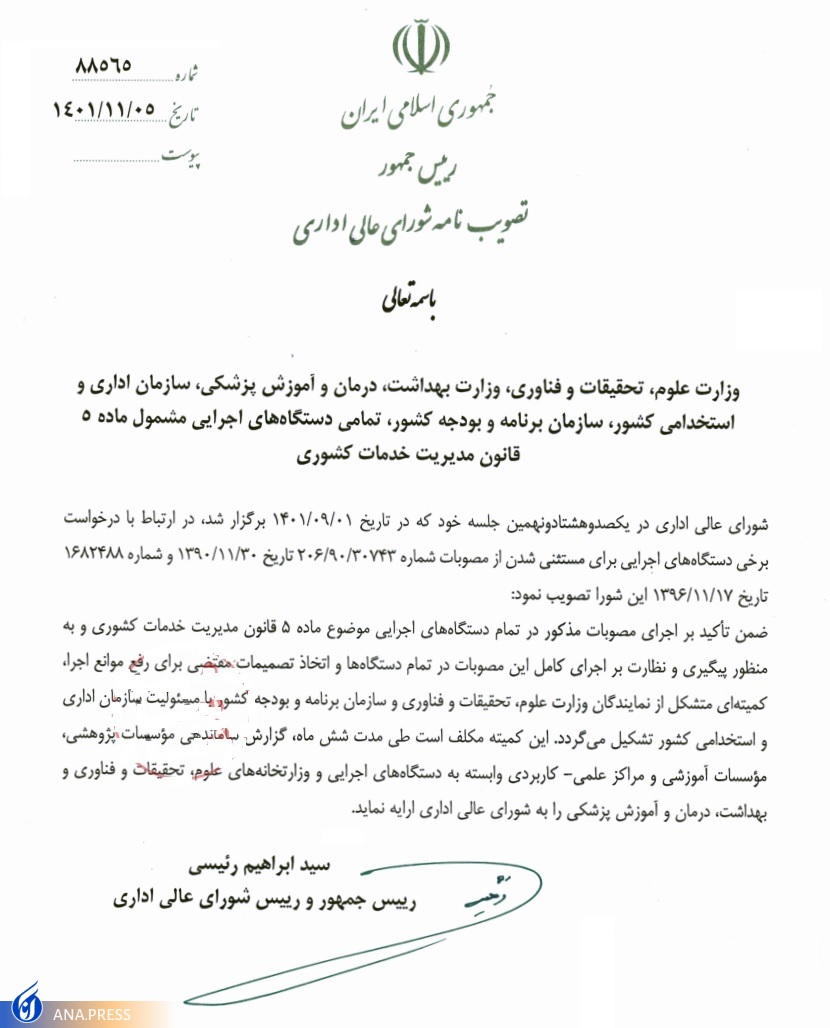 جمهوری اسلامی ایران
رییس جمهور
تصویب نامه شورای عالی اداری
شماره ۸۸۵۶۵
تاریخ ۱۴۰۱/۱۱/۰۵
پیوست
باسمه تعالی
وزارت علوم، تحقیقات و فناوری، وزارت بهداشت، درمان و آموزش پزشکی، سازمان اداری و
استخدامی کشور، سازمان برنامه و بودجه کشور، تمامی دستگاه‌های اجرایی مشمول ماده ۵
قانون مدیریت خدمات کشوری
شورای عالی اداری در یکصدوهشتادونهمین جلسه خود که در تاریخ ۱۴۰۱/۰۹/۰۱ برگزار شد، در ارتباط با درخواست
برخی دستگاه‌های اجرایی برای مستثنی شدن از مصوبات شماره ۲۰۶/۹۰/۳۰۷۴۳ تاریخ ۱۳۹۰/۱۱/۳۰ و شماره ۱۶۸۲۴۸۸
تاریخ ۱۳۹۶/۱۱/۱۷ این شورا تصویب نمود:
ضمن تأکید بر اجرای مصوبات مذکور در تمام دستگاه‌های اجرایی موضوع ماده ۵ قانون مدیریت خدمات کشوری و به
منظور پیگیری و نظارت بر اجرای کامل این مصوبات در تمام دستگاه‌ها و اتخاذ تصمیمات مقتضی برای رفع موانع اجرا،
کمیته‌ای متشکل از نمایندگان وزارت علوم، تحقیقات و فناوری و سازمان برنامه و بودجه کشور با مسئولیت سازمان اداری
و استخدامی کشور تشکیل می‌گردد. این کمیته مکلف است طی مدت شش ماه، گزارش ساماندهی مؤسسات پژوهشی،
مؤسسات آموزشی و مراکز علمی- کاربردی وابسته به دستگاه‌های اجرایی و وزارتخانه‌های علوم، تحقیقات و فناوری و
بهداشت، درمان و آموزش پزشکی را به شورای عالی اداری ارایه نماید.
سید ابراهیم رئیسی
رییس جمهور و رییس شورای عالی اداری
ANA.PRESS